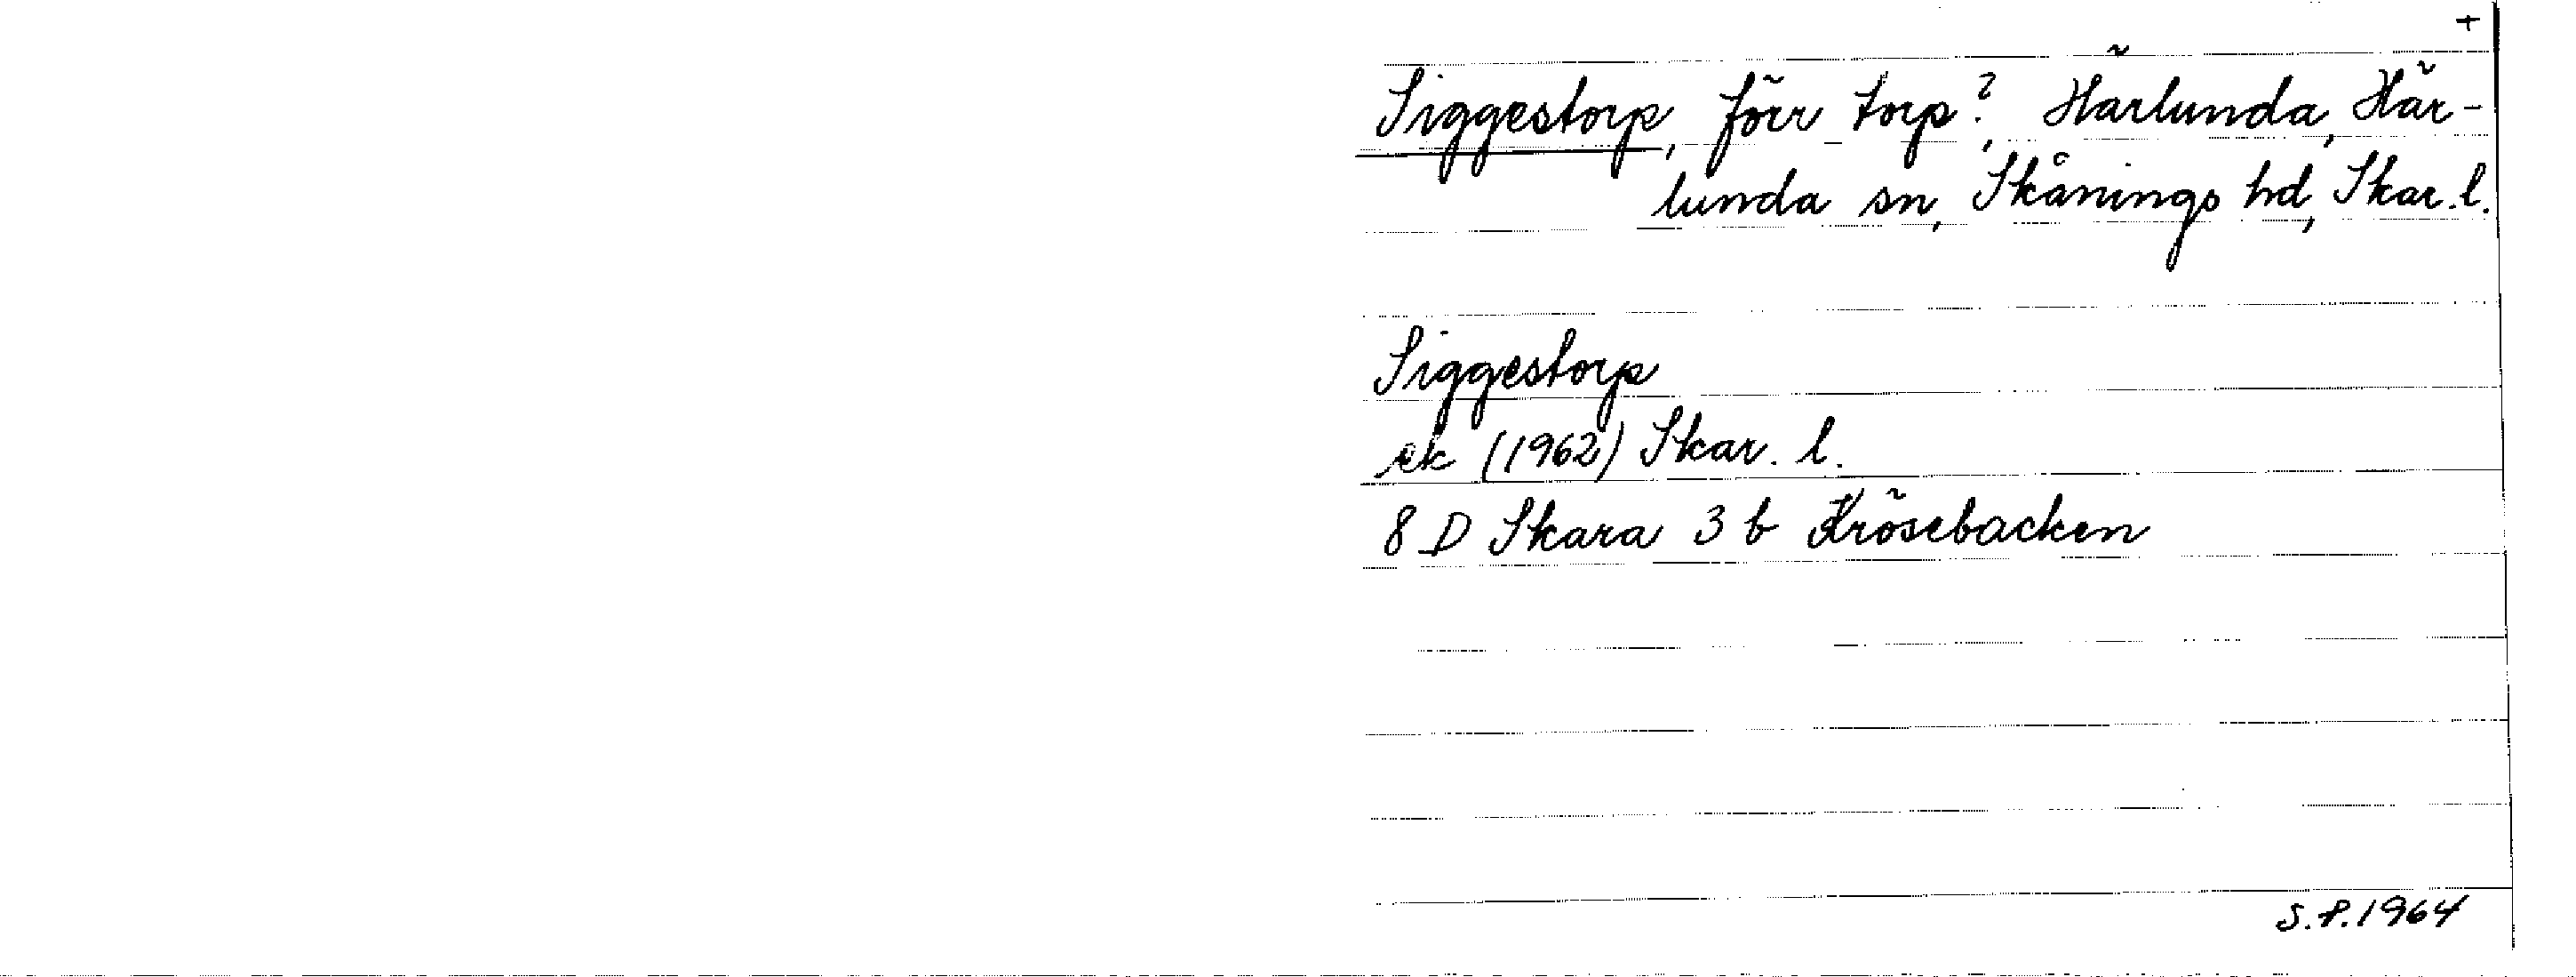 +
Siggestorp, förr torp?, Härlunda, Här-
lunda sn, Skånings hd, Skar. l.
Siggestorp
ek (1962) Skar. l.
8 D Skara 3 b Krösebacken
S.P. 1964